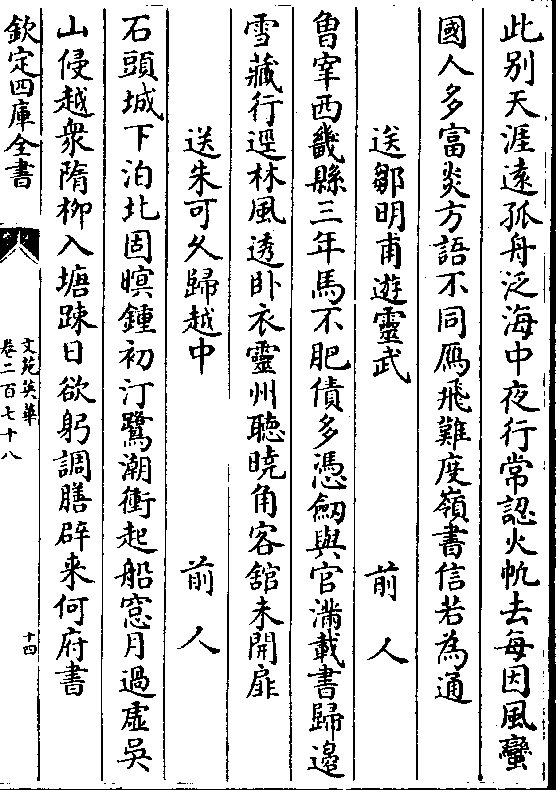 此别天涯遠孤舟泛海中夜行常認火帆去每因風蠻
國人多富炎方語不同鴈飛難度嶺書信若為通
送鄒明甫遊靈武　前人
魯宰西畿縣三年馬不肥債多憑劒與官滿載書歸邉
雪藏行逕林風透卧衣靈州聽曉角客舘未開扉
送朱可乆歸越中　前人
石頭城下泊北固暝鍾初汀鷺潮衝起船窓月過虚吳
山侵越衆隋柳入塘踈日欲躬調膳辟来何府書
欽定四庫全書
文苑英華
卷二百七十八
十四